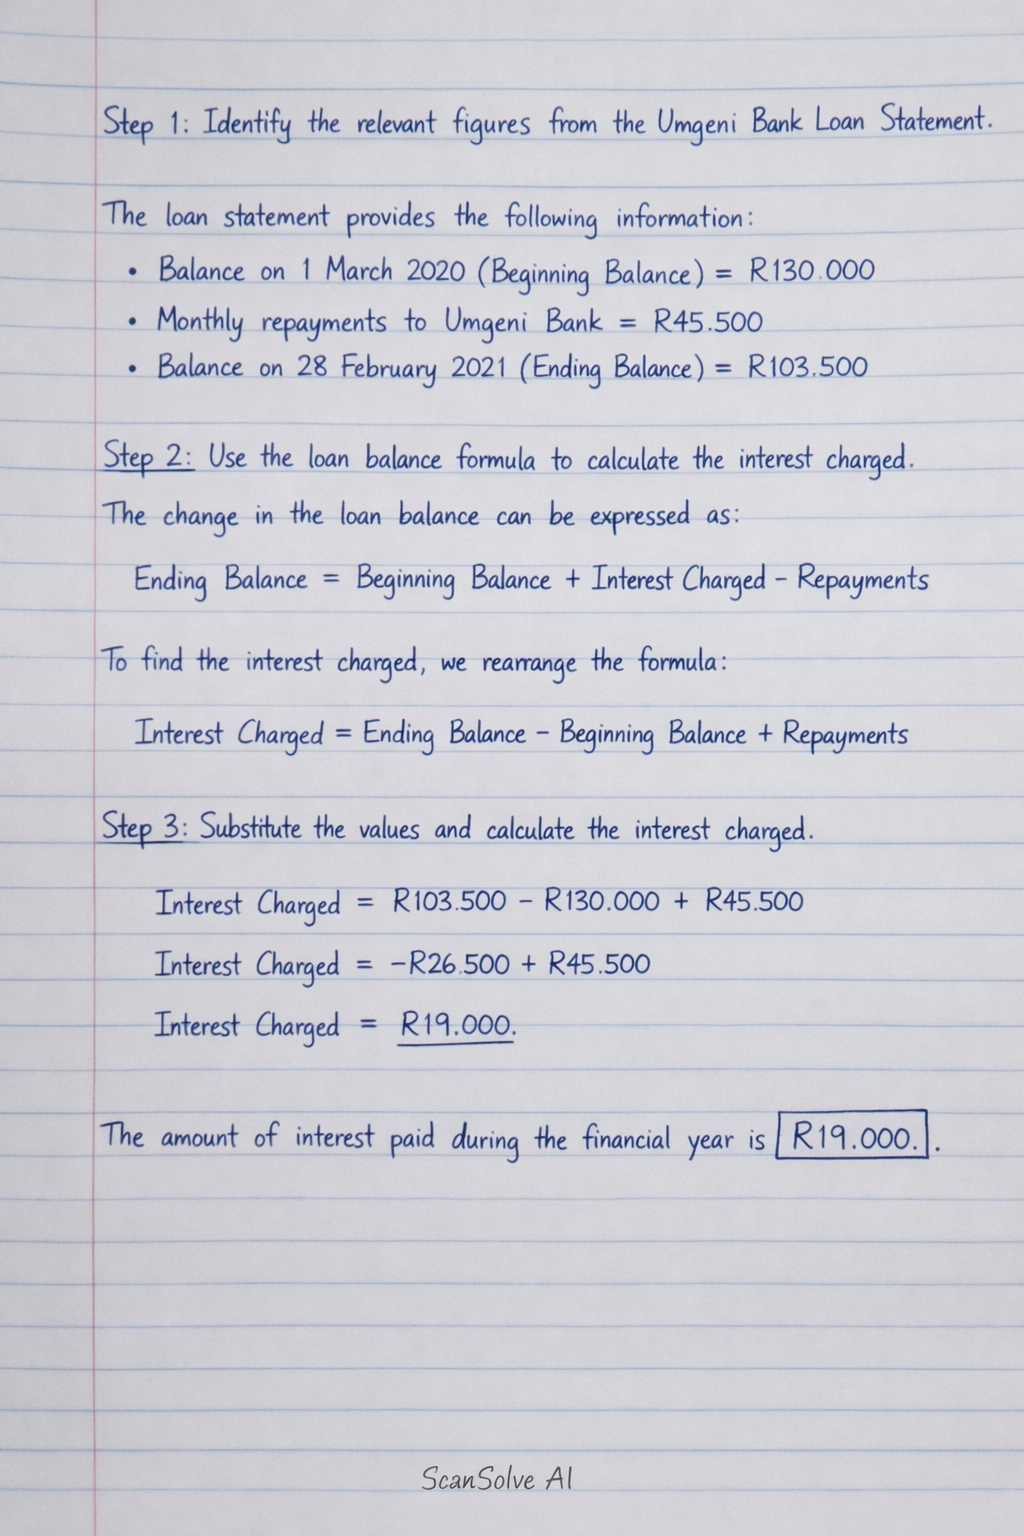 Step 1: Identify the relevant figures from the Umgeni Bank Loan Statement.
The loan statement provides the following information:
• Balance on 1 March 2020 (Beginning Balance) = R130.000
• Monthly repayments to Umgeni Bank = R45.500
• Balance on 28 February 2021 (Ending Balance) = R103.500
Step 2: Use the loan balance formula to calculate the interest charged.
The change in the loan balance can be expressed as:
Ending Balance = Beginning Balance + Interest Charged - Repayments
To find the interest charged, we rearrange the formula:
Interest Charged = Ending Balance - Beginning Balance + Repayments
Step 3: Substitute the values and calculate the interest charged.
Interest Charged = R103.500 - R130.000 + R45.500
Interest Charged = -R26.500 + R45.500
Interest Charged = R19.000.
The amount of interest paid during the financial year is R19.000. .
ScanSolve AI